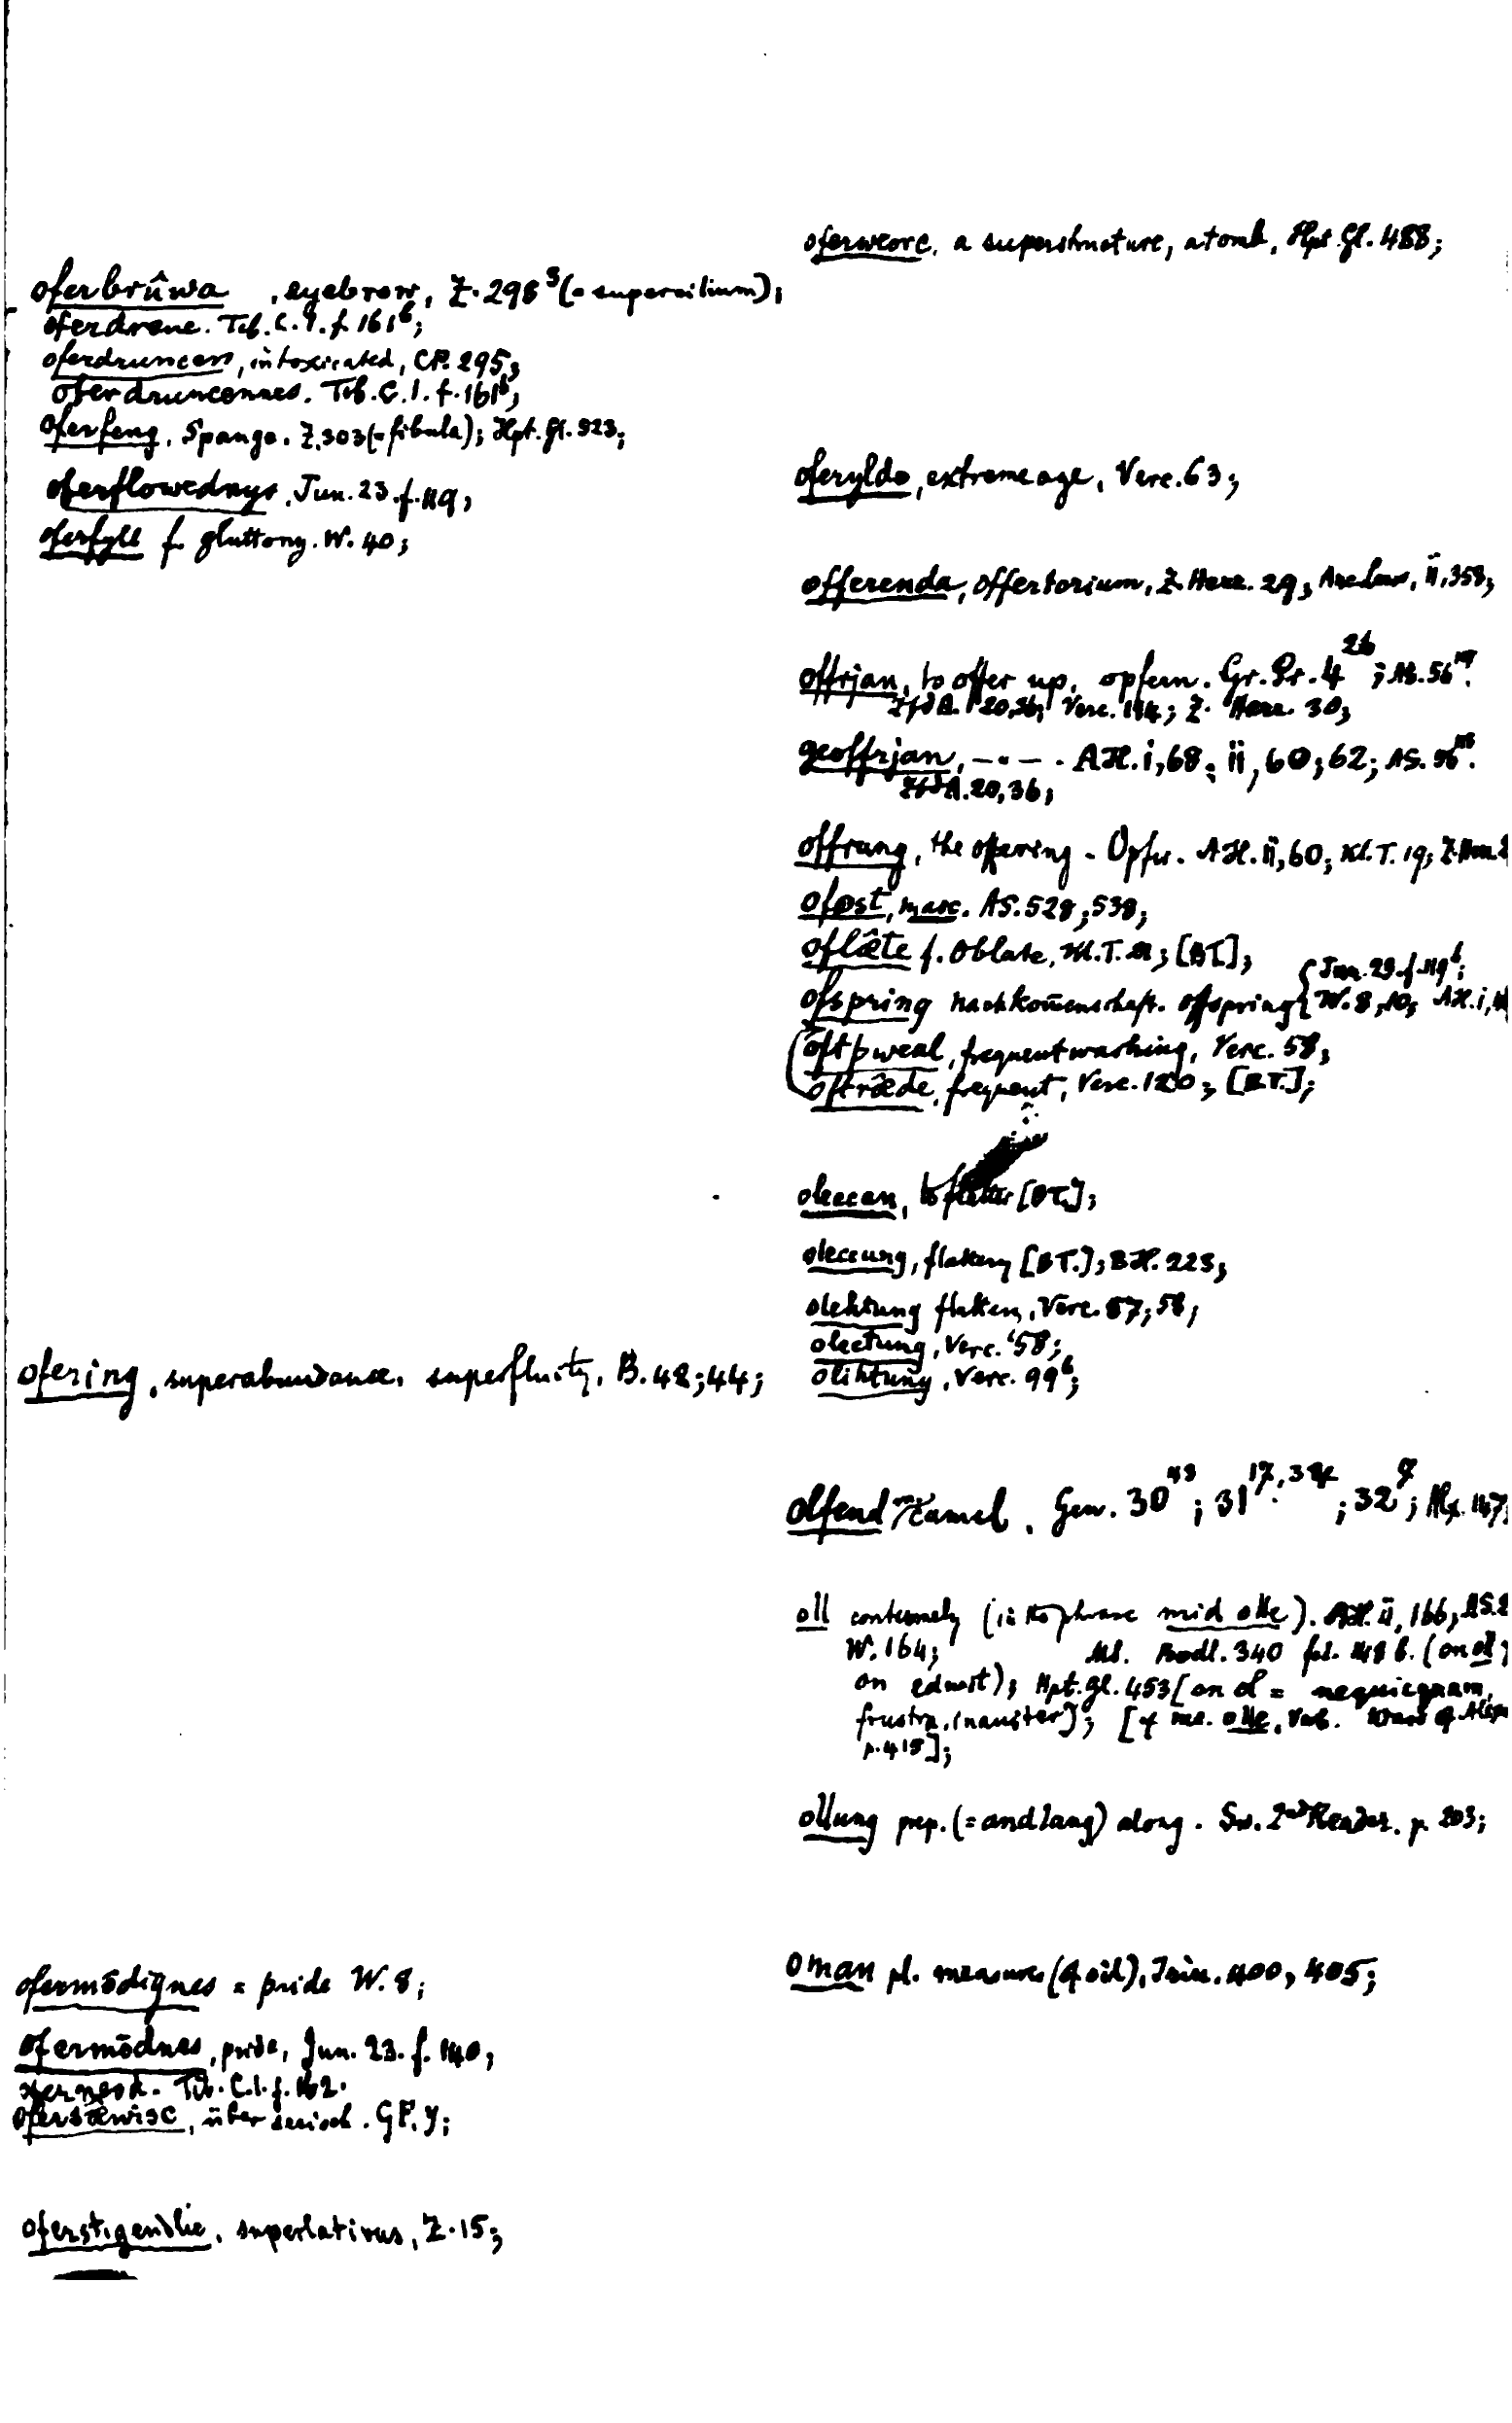 oferbrûwa, eyebrow, Z. 298³ (= supercilium);
oferdrenc. Tib. C. 1. f. 161ᵇ;
oferdruncen, intoxicated, CP. 295;
oferdruncennes. Tib. C. 1. f. 161ᵇ;
oferfeng, Spange. Z. 303 (= fibula); Hpt. Gl. 523;
oferflowednys, Jun. 23. f. 119;
oferfyll f. gluttony. W. 40;
ofering, superabundance, superfluity, B. 42; 44;
ofermōdignes = pride W. 8;
ofermōdnes, pride, Jun. 23. f. 140;
Tib. C. 1. f. 162.
ofersǣwisc, über seeisch. GF. y;
oferstigendlic, superlativus, Z. 15;
oferweorc, a superstructure, a tomb, Hpt. Gl. 488;
oferyldo, extreme age, Verc. 63;
offerenda, offertorium, Z. Herr. 29; 358;
offrjan, to offer up, opfern. Gr. Pr. 4²⁶; AS. 56
ZfdA. 20,36; Verc. 114; Z. Herr. 30;
geoffrjan, –"–. AH. i, 68; ii, 60; 62; AS. 
ZfdA. 20,36;
offrung, the offering - Opfer. AH. ii, 60; Kl. T. 19;
ofost, masc. AS. 528; 538;
oflǣte f. Oblate, Kl. T. [BT];
Jun. 23. f. 119ᵇ;
ofspring nachkom̄enschaft. offspring { W. 8, 10; AH. i,
oftþweal, frequent washing, Verc. 58;
oftrǣde, frequent, Verc. 120; [BT.];
oleccan, to flatter [BT.];
oleccung, flattery [BT.]; BH. 223;
olehtung flattery, Verc. 57; 58;
olectung, Verc. 58;
olihtung, Verc. 99ᵇ;
olfend m. Camel. Gen. 30⁴³; 31¹⁷·³⁴; 32⁷; 147;
oll contumely (in the phrase mid olle). AH. ii, 166;
W. 164; Ms. Bodl. 340 fol. 148 b. (on ol
on edwit); Hpt. Gl. 453 [on ol = nequicquam,
frustra, inaniter]; [cf me. olle, Wars of Alex
p. 415];
ollung prep. (= andlang) along. Sw. 2ⁿᵈ Reader. p. 203;
oman pl. measures (of oil), 400, 405;